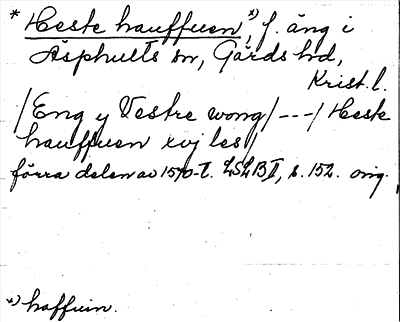 * Heste hauffuen, *) f. äng i
Äsphults sn, Gärds hd,
Krist. l.
/Eng y Vestre wong/ --- / Heste
hauffuen xvj les/
förra delen av 1570-t. LSLB II, s. 152. orig.
*) haffuin.